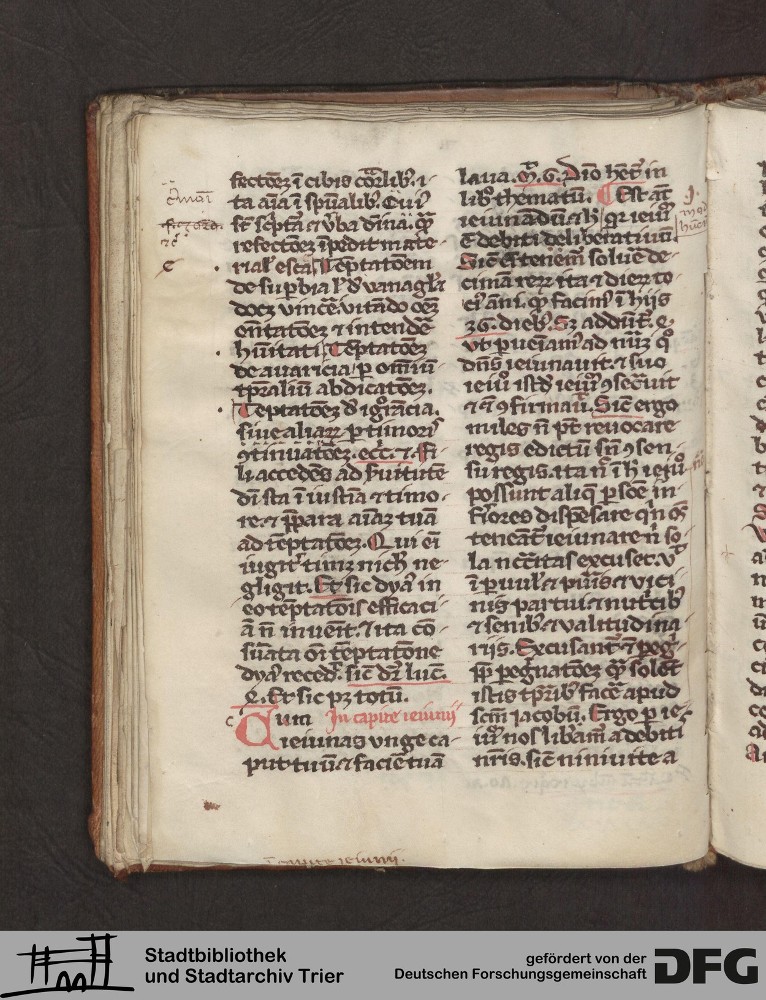 fectōeꝫ ī cibis cōꝛalibꝰ. i-
ta aīa ī sp̄ualibꝰ. Cui
st̄ sc̄ptā ⁊ v̄ba dīnā. q̄
refectōeꝫ īpedit mate-
rialꝭ esca. Tēptatōem
de supbia ꝉ d̓ vanagl̓a
doceꝫ vincē. vitādo oēꝫ
on̄tatōeꝫ ⁊ intendē
hūītati. Tēptatōeꝫ
de auaricia. ꝑ om̄iū
tp̄ralium abdicatōeꝫ.
Tēptatōeꝫ d̓ igꝰrācia.
siue aliaꝝ ꝑ timoris
ꝯtinuatōeꝫ. ecc̄. ⁊. Fi-
li accedēs ad s̄uitutē
dī sta ī iusticia ⁊ timo-
re. ⁊ p̄para aīaꝫ tuā
ad tēptatōeꝫ. Qui eī
iugit̓ timꝫ nichꝉ ne-
gligit. Et sic dyaꝰ in
eo tēptatōis efficaci-
ā nō inuēit. Ita cō-
sūata oī tēptatōne
dyaꝰ reced̓. sic̄ dr̄ luc̄.
4. Et sic pꝫ totū.
Cum In capite ieiunij
ieiunas vnge ca-
put tuū ⁊ faciē tuā
laua. M̄. 6. Dīo hēt̓ in
libꝰ thematū. Est aūt
ieiunādū ⁊ hꝰ qꝛ ieiuꝰ
ē debiti deliberatiuū.
Sic̄ eī tenem̄ soluē de-
cimā reꝝ ita ⁊ dieꝝ to-
ciꝰ anni. qd̓ facimꝰ ī hijs
36. diebꝰ. Sꝫ addunt̓. 4.
vt ꝑueniamꝰ ad nūꝫ qͦ
dn̄s ieiunauit. ⁊ suo
ieiūꝰ istd̓ ieiūꝫ ꝯsec̄uit
⁊ ꝯfirmauit. Sic̄ ergo
miles nō pt̄ reuocare
regis edictū sn̄ ꝯsen-
su regis. ita nō ī hꝰ ieiūꝰ
possunt aliq̄ ꝑsōe in-
fiores dispēsare q̄n oēs
teneāt̓ ieiunare nī so-
la nccītas excuset. vt
ī ꝑuulꝭ ⁊ p̄gnīs ⁊ vici-
nis partui ⁊ nut̓cibꝰ
⁊ senibꝰ ⁊ valitudina-
rijs. Excusant̓ ⁊ ꝑeg̓
ꝓpt̓ ꝑeg̓natōeꝫ q̄ solēt
istis tp̄ribꝰ facē apud
sc̄m jacobū. Ergo ꝑ ie-
iūꝰ nos libam̄ a debiti
nr̄is. sic̄ niniuite a
ī capite ieiunij.
Stadtbibliothek
und Stadtarchiv Trier
gefördert von der
Deutschen Forschungsgemeinschaft
DFG